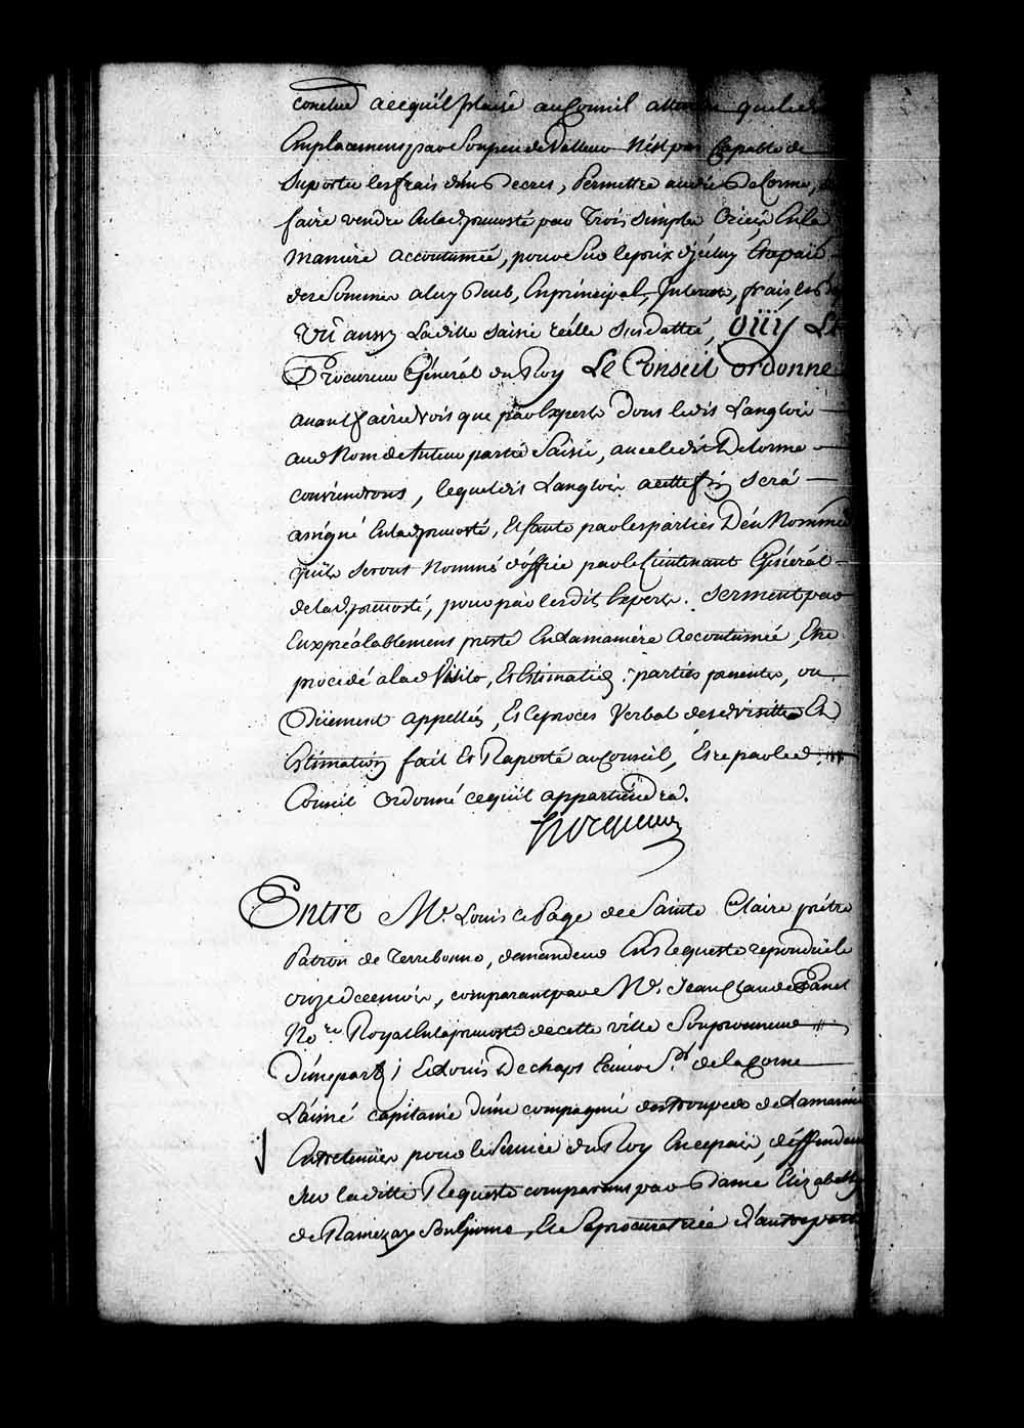 conclud acequ'il plaise au Conseil attendu queledt
Emplacement par Son peu de Valleur N'est pas Capable de
Suporter les frais d'un Decret, permettre audit Delorme, de
faire vendre Enlad. prevosté par Trois simples Criées En la
maniere accoutumée, pour Sur le prix d'jcéluy Estre paié
des Sommes a luy deub, En principal, Interest, frais, et dep
Vû aussy Laditte saisie réélle Susdattée, Oüÿ Le
Procureur Général du Roy Le Conseil Ordonne
avant faire droit que par Experts dont ledit Langlois
aud Nom de Tuteur partie Saisie, avec ledit Delorme
conviendront, lequel dit Langlois a cette fin Sera
assigné Enlad. prevosté, Et faute par les parties D'en Nommer
qu'ils seront Nommé d'office par le Lieutenant Général
de lad. prevosté, pour par lesdits Experts. Serment par
Eux préalablement presté En la maniere Accoutumée, Etre
procédé a lad Visite, Et Estimation : parties presentes, ou
Düement appellés, Et le proces Verbal desd visitte Et
Estimation fait Et Raporté au Conseil, Etre par led.
Conseil Ordonné cequ'il appartiendra.
Hocquart
Entre Mr. Louis LePage de Sainte Claire prêtre
Patron de Terrebonne, demandeur En Requeste repondüe le
onze de ce mois, comparant par Me. Jean Claude Panet
No.re Royal En la prevosté de cette ville Son procureur
D'une part ; Et Louis Dechaps Ecuier Sr. de la Corne
L'ainé capitaine d'une compagnie des troupes de la marine
Entretenües pour le Service du Roy En ce païs, déffendeur
Sur laditte Requeste comparant par Dame Elizabeth
de Ramezay Son Epouse, Et Sa procuratrice d'autre part